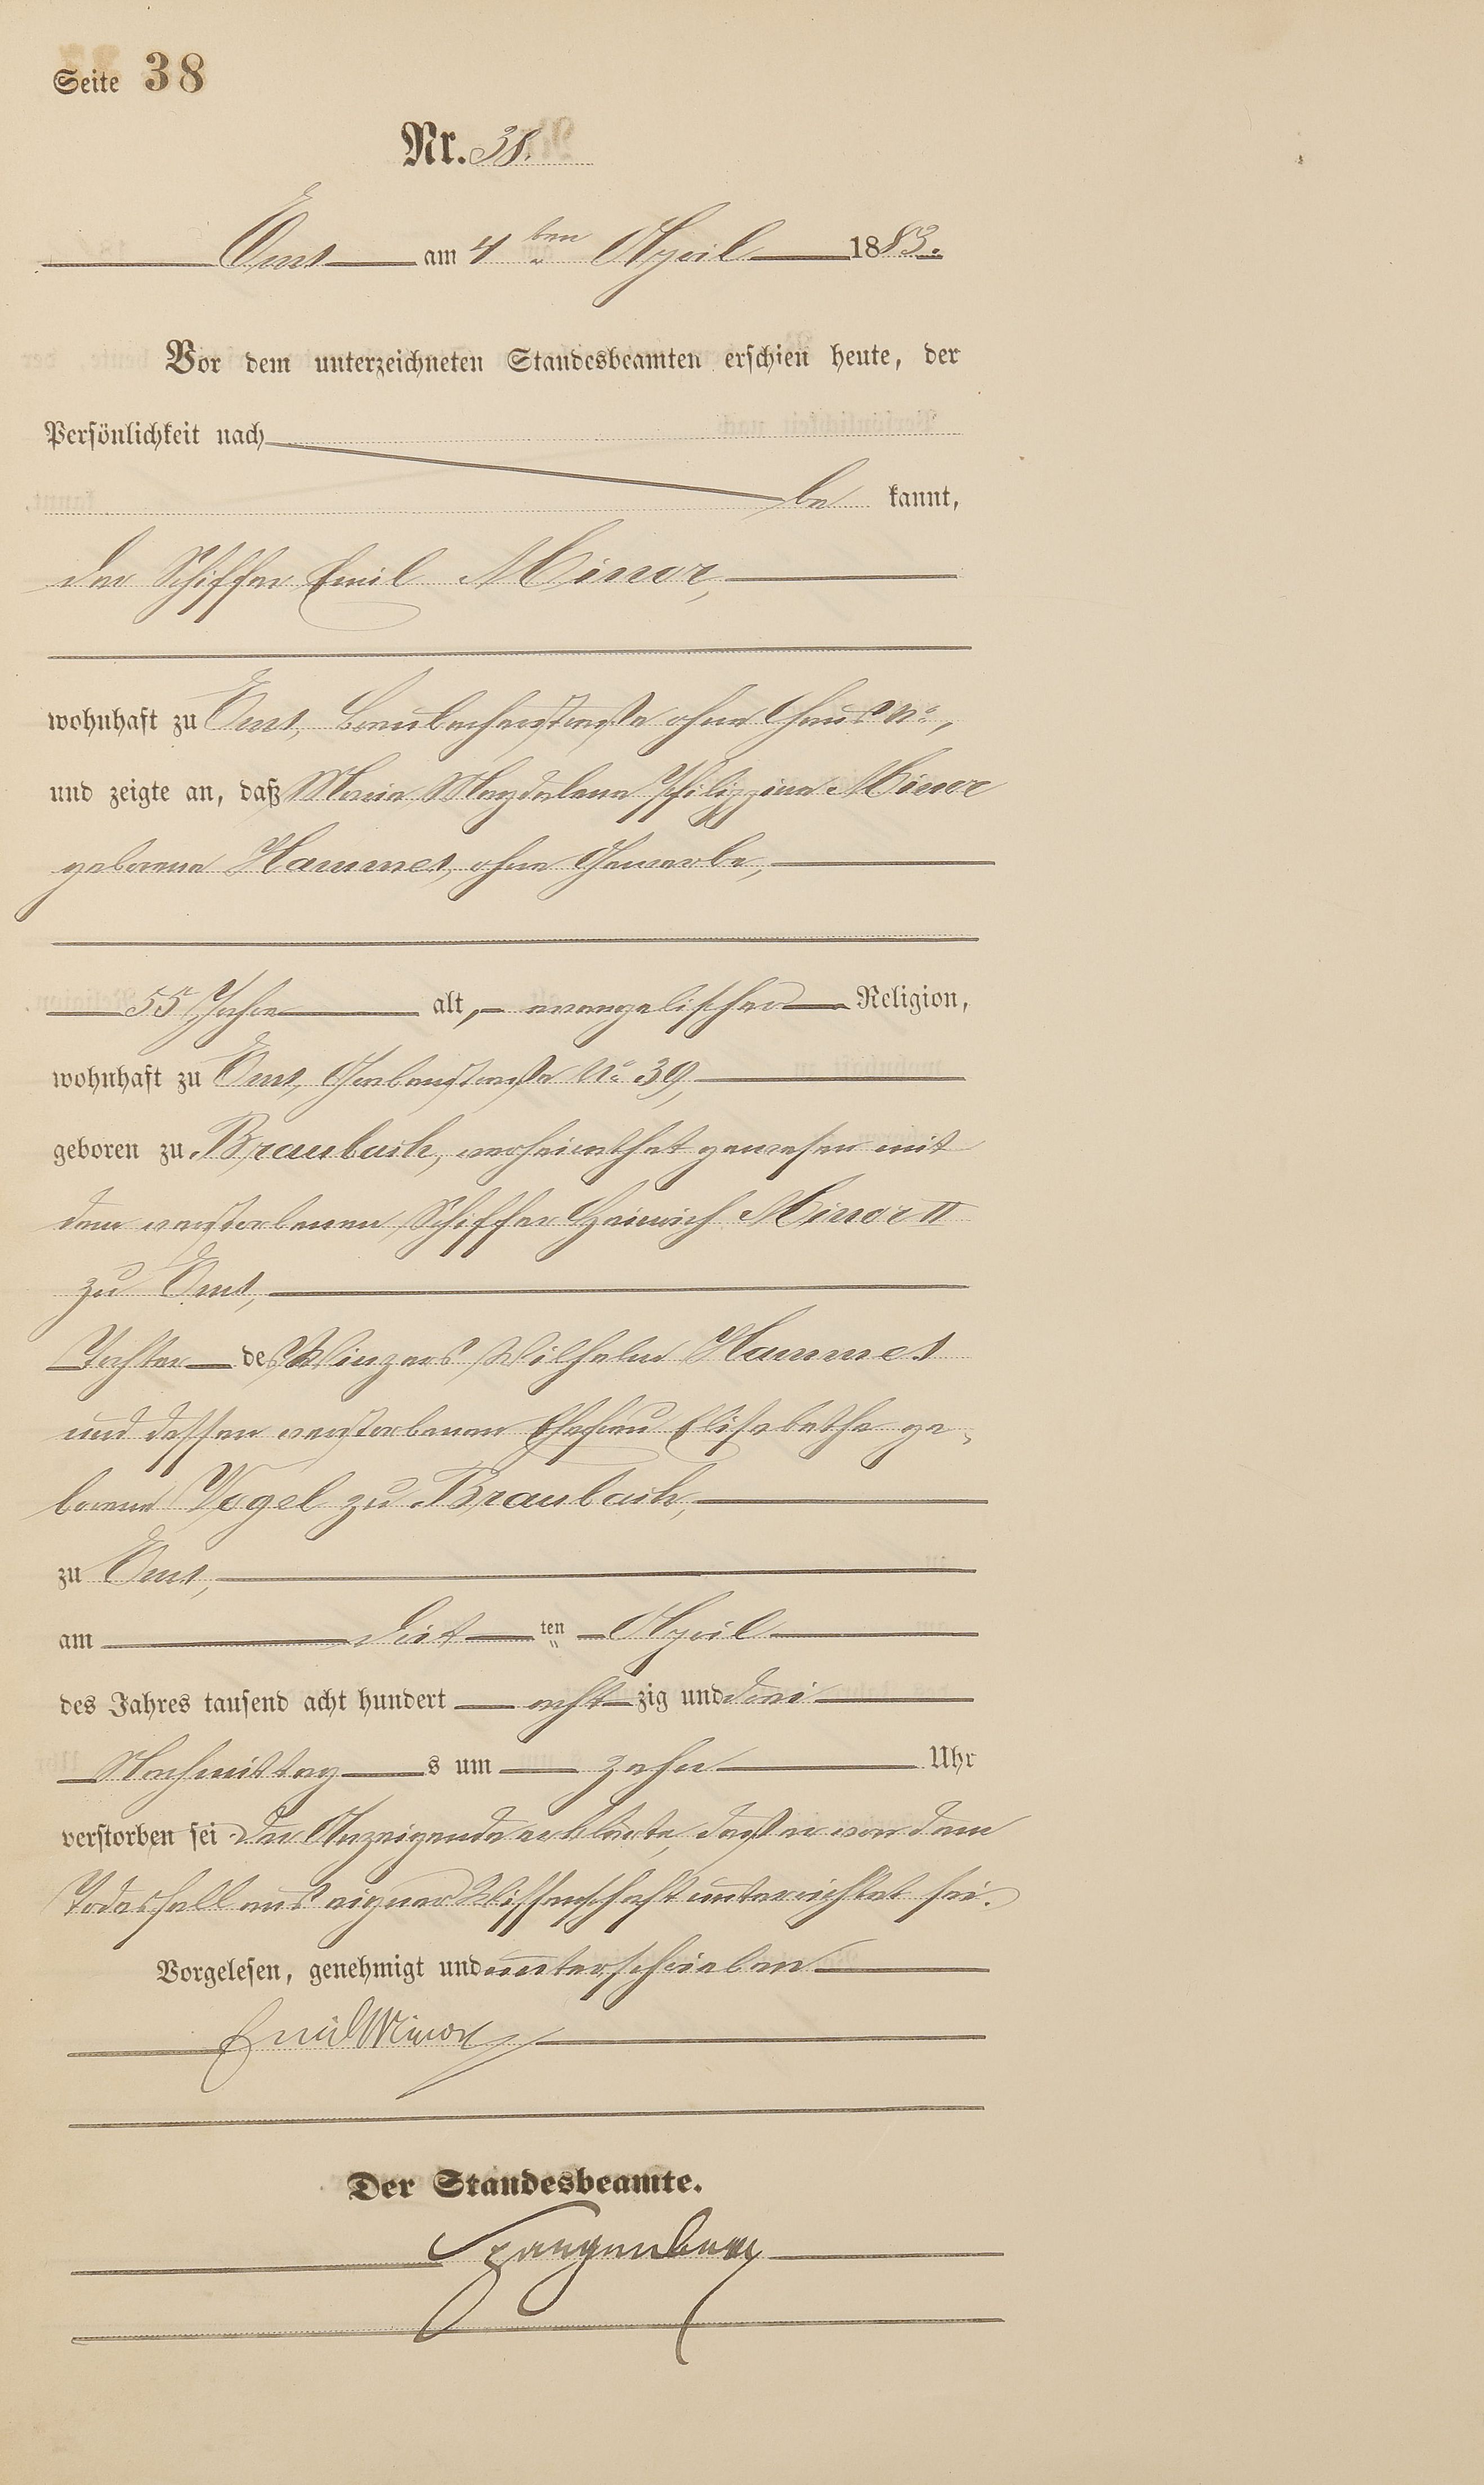 Seite 38
Nr. 38.
Ems am 4ten April 1883.
Vor dem unterzeichneten Standesbeamten erschien heute, der
Persönlichkeit nach
be kannt,
der Schiffer Emil Minor,
wohnhaft zu Ems, Braubacherstraße ohne Haus No,
und zeigte an, daß Maria Magdalena Philippine Minor
geborene Hammes, ohne Gewerbe,
55 Jahre alt, evangelischer Religion,
wohnhaft zu Ems, Grabenstraße No 39,
geboren zu Braubach, verheirathet gewesen mit
dem verstorbenen Schiffer Heinrich Minor II
zu Ems,
Tochter des Winzers Wilhelm Hammes
und dessen verstorbenen Ehefrau Elisabethe ge-
borene Vogel zu Braubach,
zu Ems,
am drit ten April
des Jahres tausend acht hundert acht zig und drei
Nachmittag s um zehn Uhr
verstorben sei. Der Anzeigende erklärte, daß er von dem
Todesfall aus eigner Wissenschaft unterrichtet sei.
Vorgelesen, genehmigt und unterschrieben
Emil Minor
Der Standesbeamte.
Spangenberg